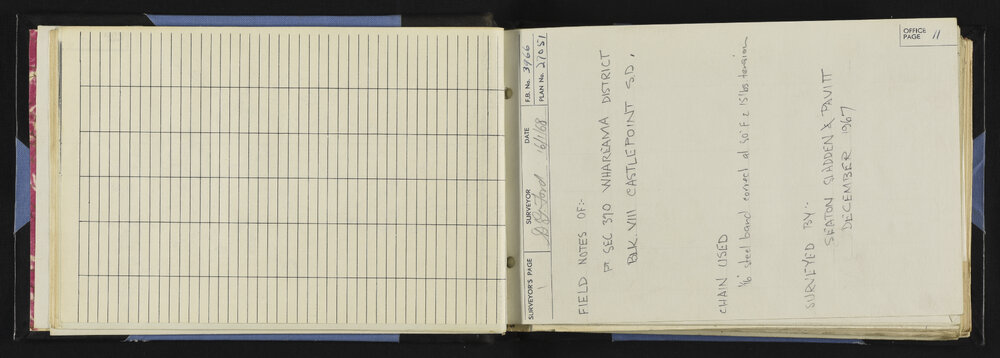 OFFICE PAGE 11
SURVEYOR'S PAGE 1
SURVEYOR
DATE 16/1/68
F.B. No. 3966
PLAN No. 27051
FIELD NOTES OF:-
Pt SEC 370 WHAREAMA DISTRICT
BLK. VIII CASTLEPOINT S.D.
CHAIN USED
1/6" steel band correct at 50°F & 15 lbs tension
SURVEYED BY:-
SEATON SLADDEN & PAVITT
DECEMBER 1967